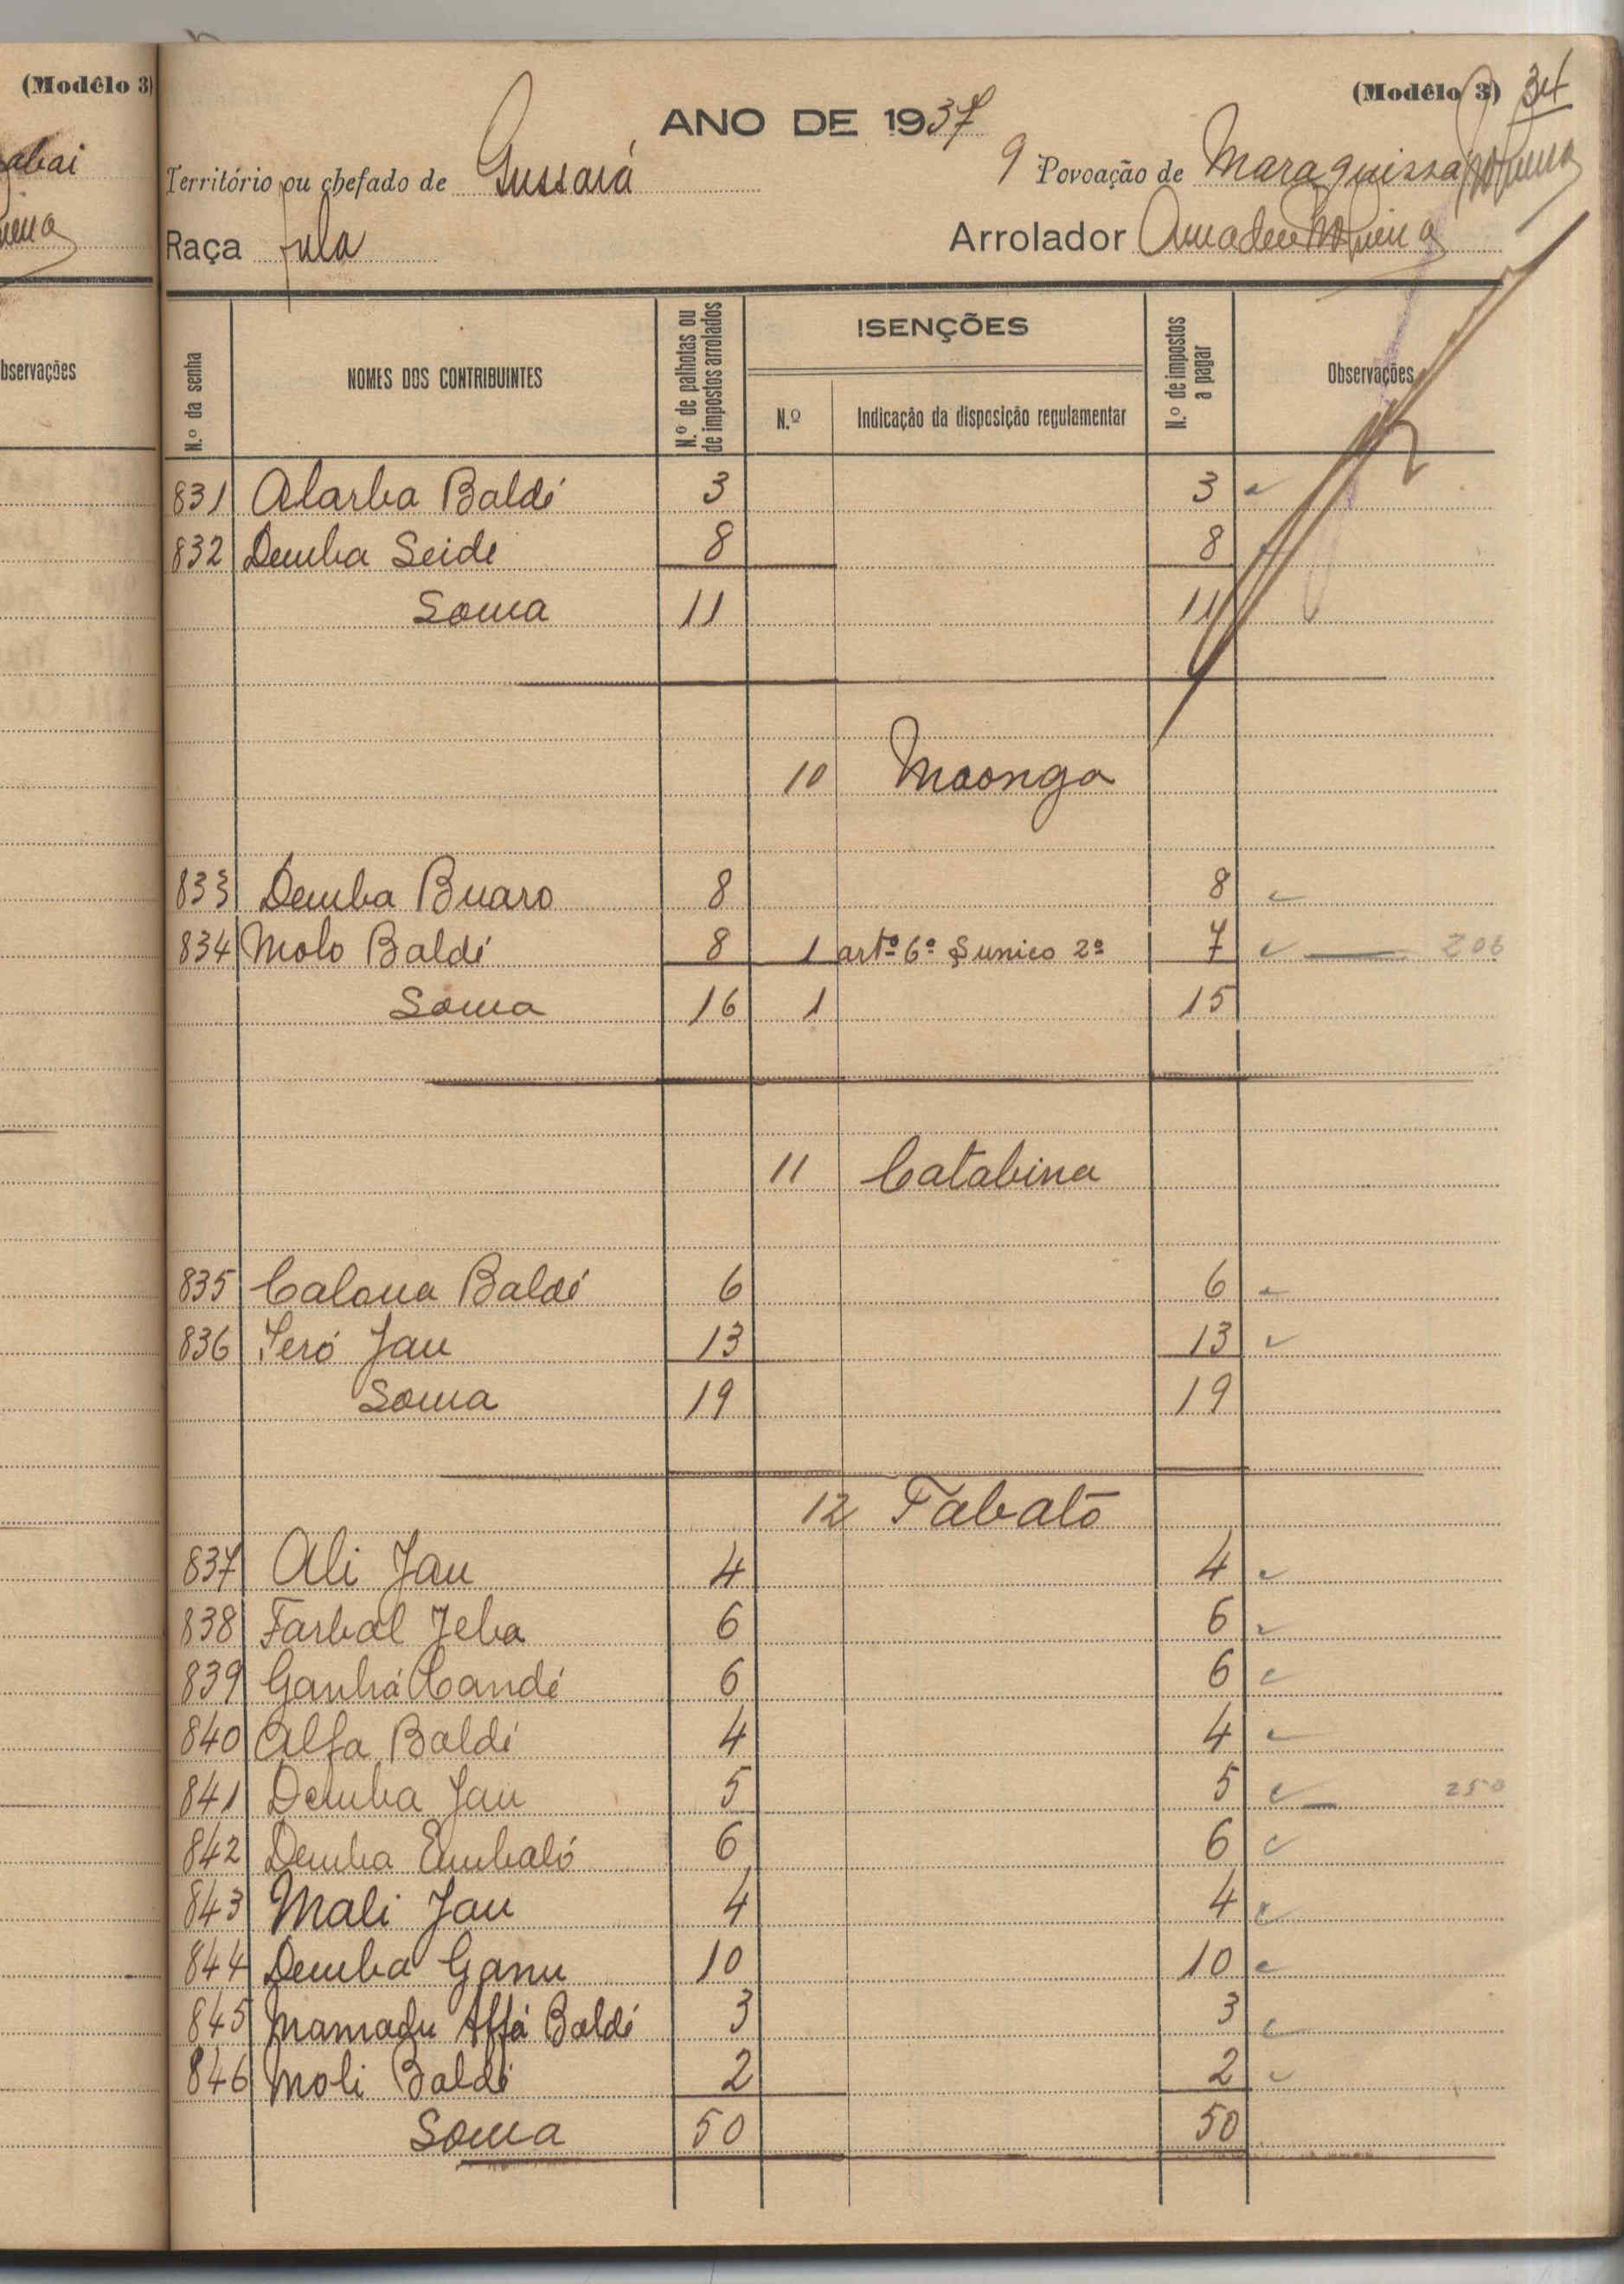 (Modêlo 3)
abai
Observações
(Modêlo 3) 34
ANO DE 1937
Território ou chefado de Gussará 9 Povoação de Maraquissa
Raça fula Arrolador Amadeu
N.º da senha NOMES DOS CONTRIBUINTES N.º de palhotas ou de impostos arrolados ISENÇÕES N.º de impostos a pagar Observações
N.º Indicação da disposição regulamentar
831 Alarba Baldé 3 3
832 Demba Seide 8 8
Soma 11 11
10 Maonga
833 Demba Buaro 8 8
834 Molo Baldé 8 1 artº 6º § unico 2º 7 206
Soma 16 1 15
11 Catabina
835 Caloua Baldé 6 6
836 Seró Jau 13 13
Soma 19 19
12 Tabatō
837 Ali Jau 4 4
838 Farbal Jeba 6 6
839 Ganhá Candé 6 6
840 Alfa Baldé 4 4
841 Demba Jau 5 5 250
842 Demba Embaló 6 6
843 Mali Jau 4 4
844 Demba Ganu 10 10
845 Mamadu Alfá Baldé 3 3
846 Moli Baldé 2 2
Soma 50 50